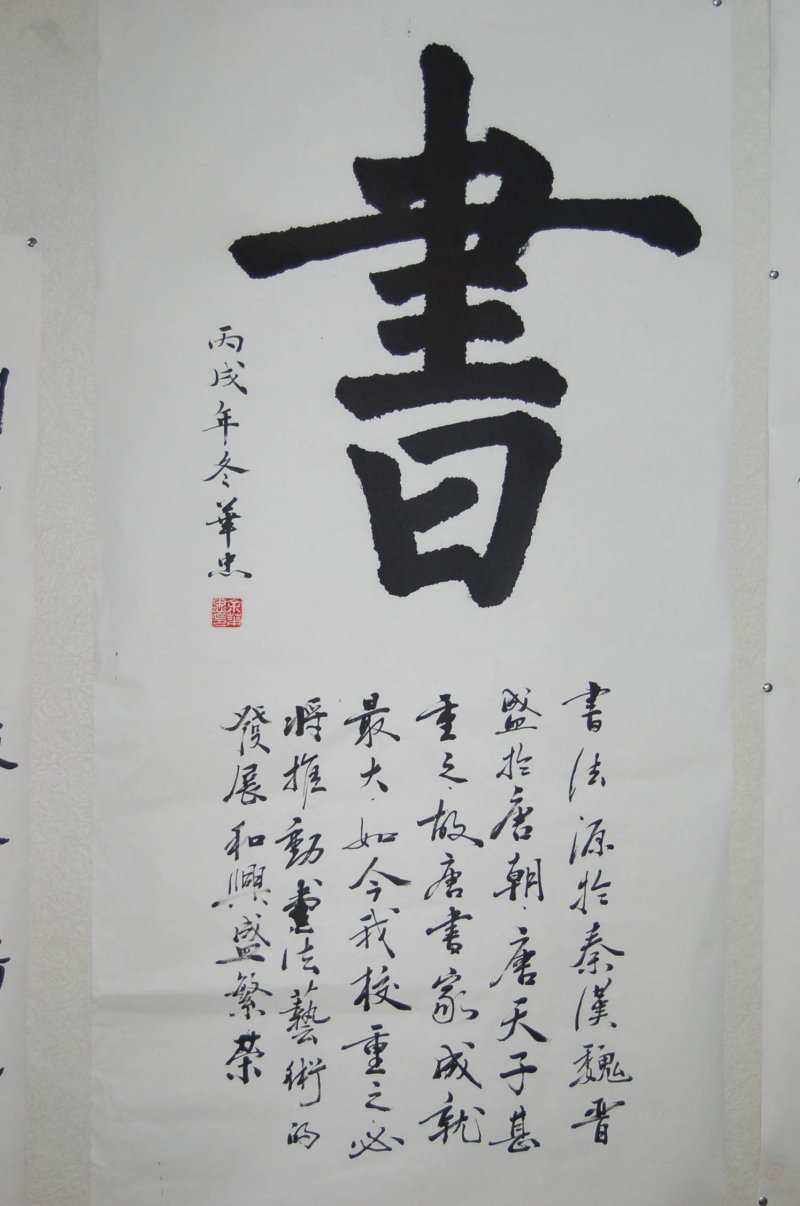 書
書法源於秦漢魏晋
盛於唐朝、唐天子甚
重之、故唐書家成就
最大、如今我校重之必
将推動書法藝術的
發展和興盛繁荣
丙戌年冬華忠